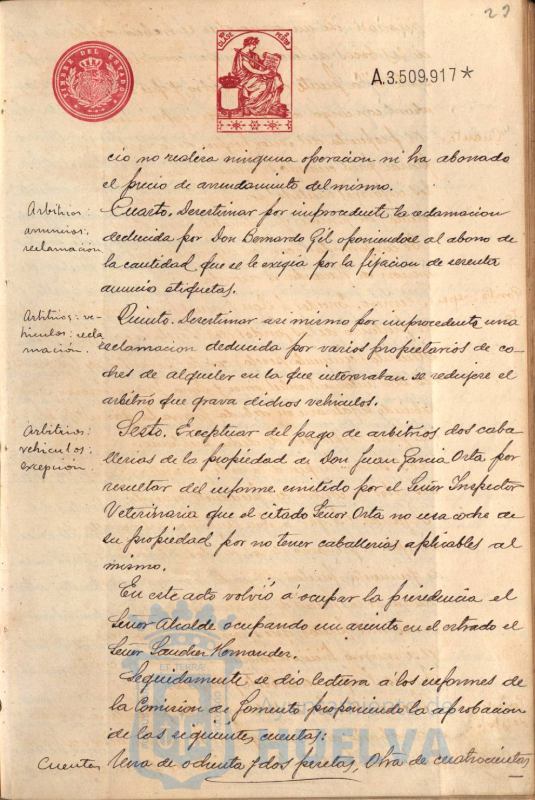 23
TIMBRE DEL ESTADO
CLASE
A.3.509.917*
cio no realiza ninguna operacion ni ha abonado
el precio de arrendamiento del mismo.
Arbitrios:
anuncios:
reclamación
Cuarto. Desestimar por improcedente la reclamacion
deducida por Don Bernardo Gil oponiendose al abono de
la cantidad que se le exigia por la fijacion de sesenta
anuncio etiquetas.
Arbitrios: ve-
hiculos: recla
mación.
Quinto. Desestimar asi mismo por improcedente una
reclamacion deducida por varios propietarios de co-
ches de alquiler en la que interesaban se redujese el
arbitrio que grava dichos vehiculos.
Arbitrios:
vehiculos:
exepción.
Sesto. Exceptuar del pago de arbitrios dos caba-
llerias de la propiedad de Don Juan Garcia Orta por
resultar del informe emitido por el Señor Inspector
Veterinaria que el citado Señor Orta no usa coche de
su propiedad por no tener caballerias aplicables al
mismo.
En este acto volvió á ocupar la presidencia el
Señor Alcalde ocupando un asiento en el estrado el
Señor Sanchez Hernandez.
Seguidamente se dio lectura á los informes de
la Comision de Fomento proponiendo la aprobacion
de las siguientes cuentas:
Cuentas
Una de ochenta y dos pesetas, Otra de cuatrocientas
HUELVA